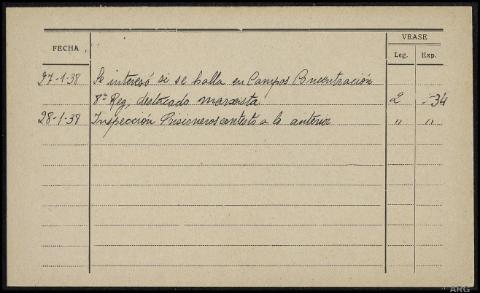 VEASE
FECHA
Leg. Exp.
27-1-38 Se interesó si se halla en Campos Concentración
8ª Reg, destacado marxista 2 -34
28-1-38 Inspección Prisioneros contesto a lo anterior " "
ARG